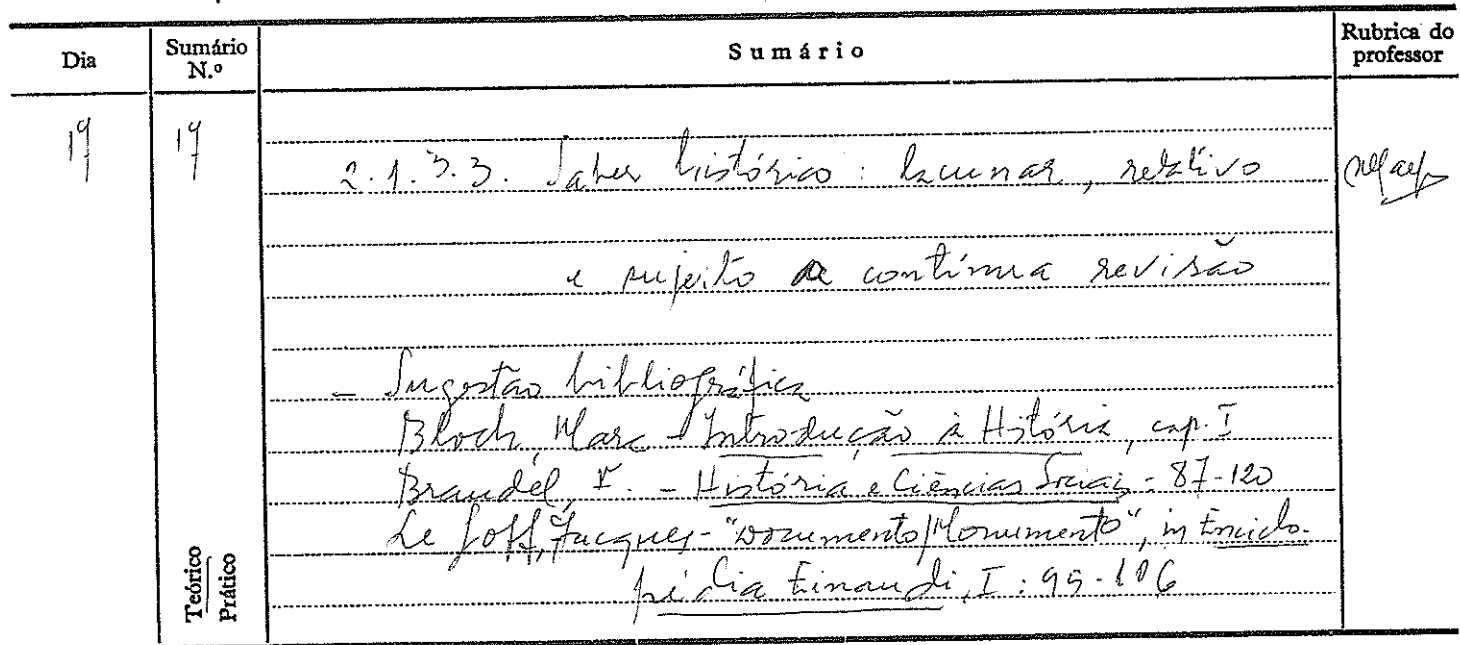 Dia Sumário N.º Sumário Rubrica do professor
19 19
2.1.3.3. Saber histórico: lacunar, relativo
e sujeito a contínua revisão
- Sugestão bibliográfica
Bloch, Marc - Introdução à História, cap. I
Braudel, F. - História e Ciências Sociais - 87-120
Le Goff, Jacques - "Documento/Monumento", in Enciclo-
pédia Einaudi, I: 95-106
Teórico
Prático